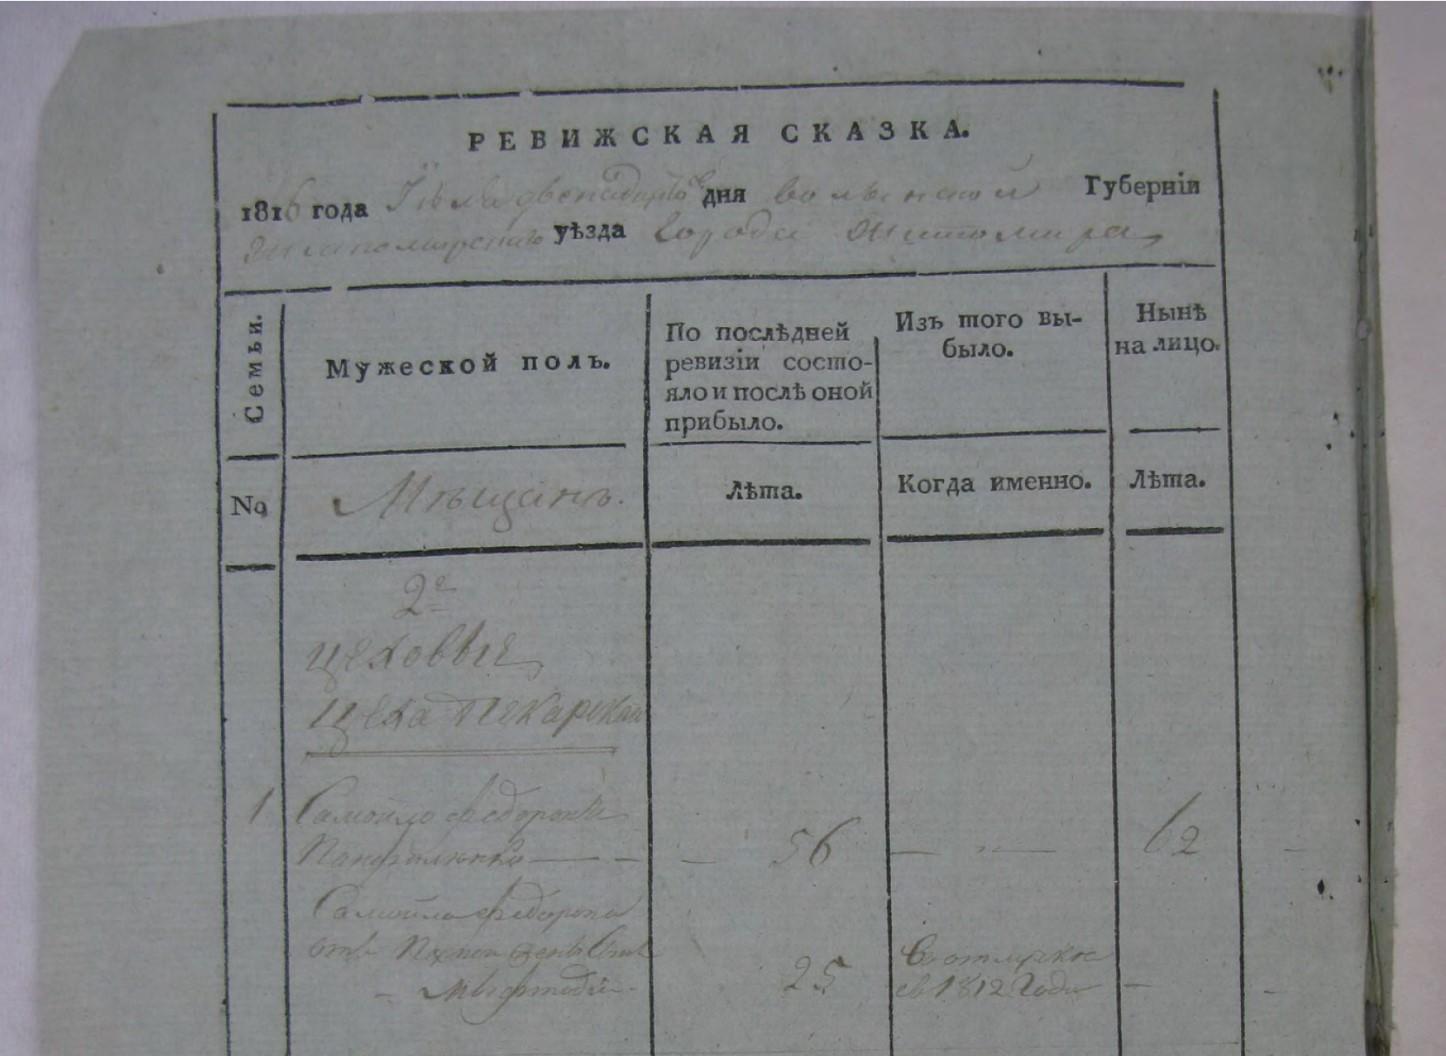 РЕВИЖСКАЯ СКАЗКА.
1816 года Іюля двенадцать дня волынской Губерніи
Житомирскаго уѣзда города Житомира
Семьи.
Мужеской полъ.
По послѣдней
ревизіи состо-
яло и послѣ оной
прибыло.
Изъ того вы-
было.
Нынѣ
на лицо.
No
Мѣщанъ.
Лѣта.
Когда именно.
Лѣта.
2е
цеховые
Цеха Пекарскаго
1 Самойло Федоровъ
56 62
Самойла Федорова
25
Мефтодій
в отлучке
с 1812 Года